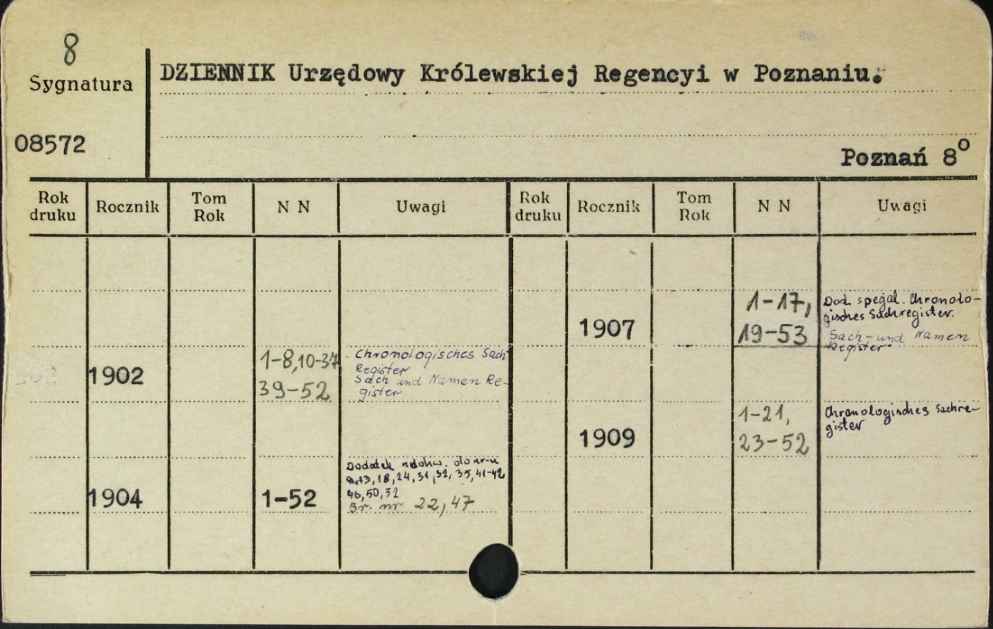 8
Sygnatura
DZIENNIK Urzędowy Królewskiej Regencyi w Poznaniu.
08572
Poznań 8°
Rok druku Rocznik Tom Rok N N Uwagi Rok druku Rocznik Tom Rok N N Uwagi
1902 1-8, 10-37
39-52
Chronologisches Sach
Register
Sach und Namen Re-
gister
1904 1-52
Dodatek do nr-u
13, 18, 24, 31, 32, 35, 41-42
46, 50, 52
Br. nr 22, 47
1907 1-17,
19-53
Dod. spegal. Chronolo-
gisches Sachregister.
Sach- und Namen
Register
1909 1-21,
23-52
Chronologisches Sachre-
gister